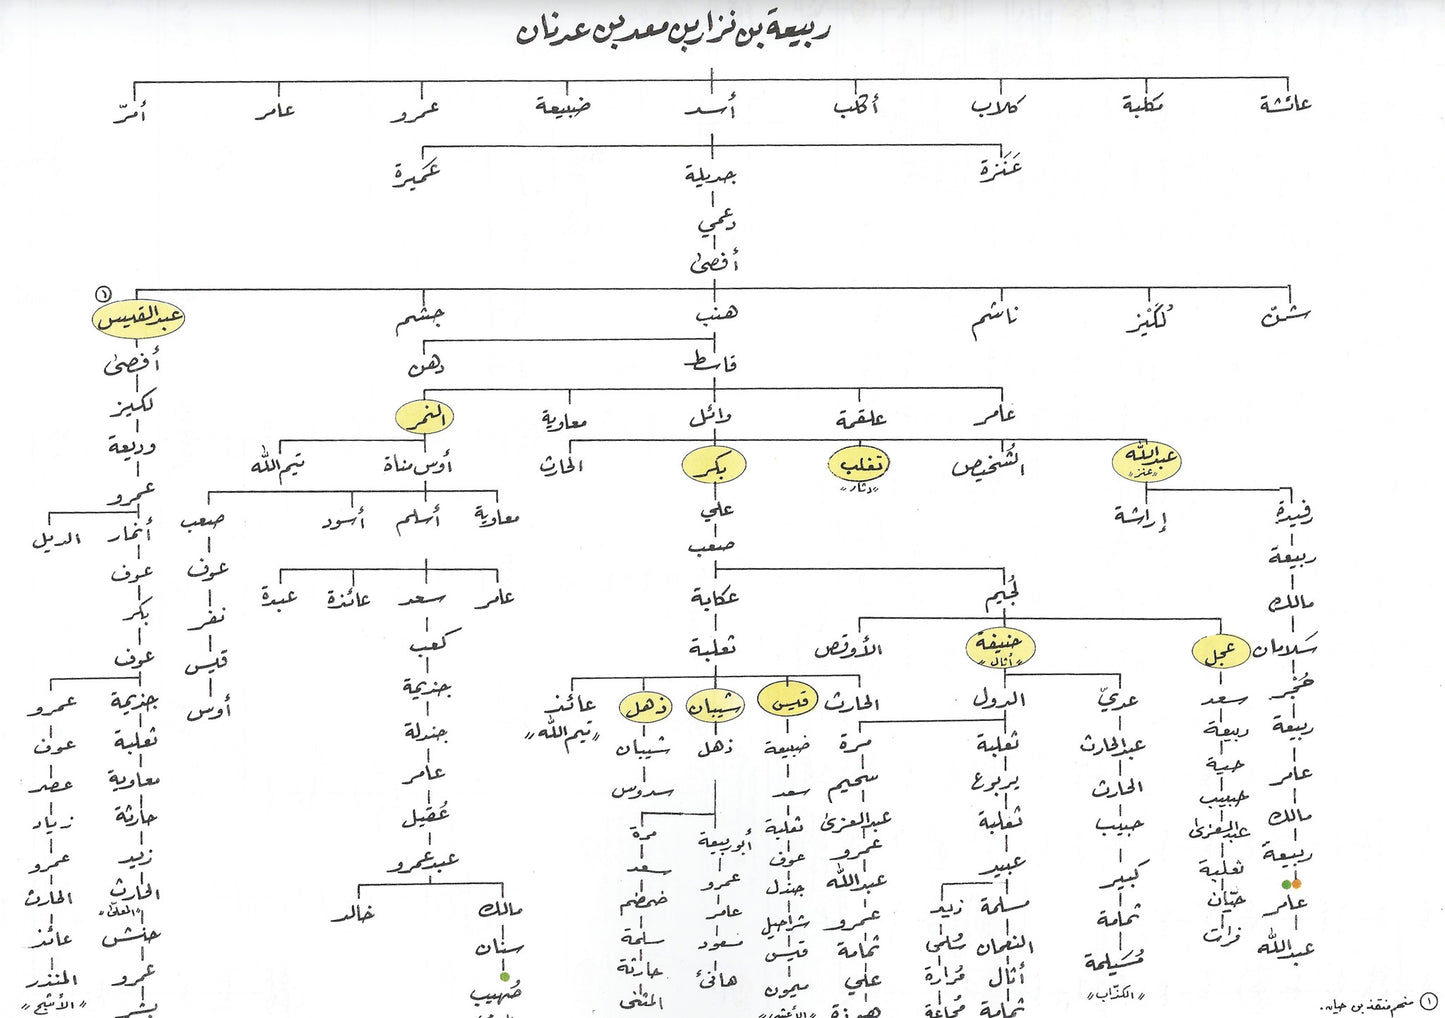 ربيعة بن نزار بن معد بن عدنان
عائشة مكلبة كلاب أكلب أسد ضبيعة عمرو عامر أمرّ
عَنَزة جديلة عَميرة
دعمي
أفصى
شنّ لُكَيْز ناشم هنب جشم عبد القيس ١
قاسط دهن أفصى
لكيز
عامر علقمة وائل معاوية النمر
وديعة
عبد الله الشخيص تغلب بكر الحارث أوس مناة تيم الله
«عنز» «دثار»
عمرو
رفيدة إراشة علي معاوية أسلم أسود صعب أنمار الديل
ربيعة صعب عوف عوف
مالك لُجيم عكابة عامر سعد عائذة عبدة نفر بكر
سلامان عجل حنيفة الأوقص ثعلبة كعب قيس عوف
«أثال»
حُجير سعد عديّ الدول الحارث قيس شيبان ذهل عائذ جذيمة أوس جذيمة عمرو
«تيم الله»
ربيعة ربيعة عبد الحارث ثعلبة مرة ضبيعة ذهل شيبان جندلة ثعلبة عوف
عامر حية الحارث يربوع سحيم سعد سدوس عامر معاوية عصر
مالك حبيب حبيب ثعلبة عبد العزى ثعلبة أبو ربيعة مرة عُقيل حارثة زياد
ربيعة عبد العزى كبير عبيد عمرو عوف عمرو سعد عبد عمرو زيد عمرو
عامر ثعلبة ثمامة مسلمة زيد عبد الله جندل عامر ضمضم مالك خالد الحارث الحارث
«المعلى»
عبد الله حيّان مُسَيلمة النعمان سلمى عمرو شراحيل مسعود سلمة سنان حنش عائذ
«الكذّاب»
فرات أثال مُرارة ثمامة قيس هانئ حارثة صُهيب عمرو المنذر
«الأشج»
ثمامة مُجاعة علي ميمون المثنى بشر
هوذة «الأعشى»
١ منهم منقذ بن حيان.